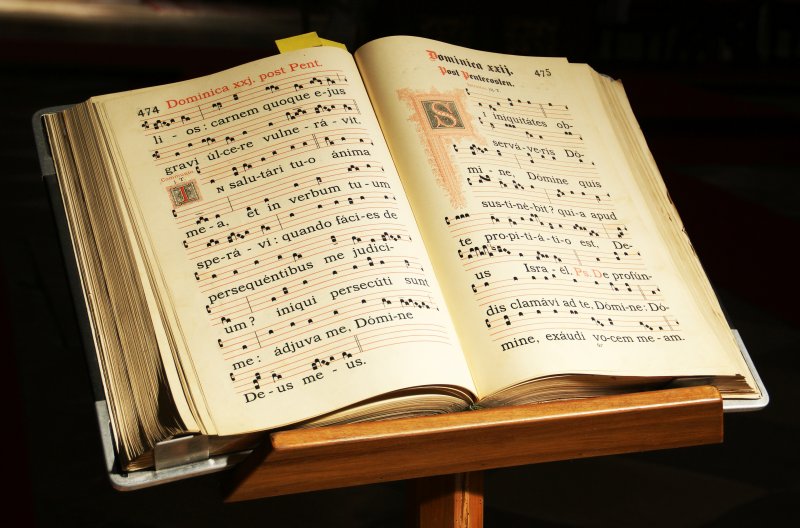 474 Dominica xxj. post Pent.
li - os : carnem quoque e-jus
gravi úlce-re vulne-rá-vit.
Communio
I N salu-tári tu-o ánima
me-a, et in verbum tu-um
spe-rá-vi : quando fácí-es de
persequéntibus me judíci-
um? iníqui persecúti sunt
me : ádjuva me, Dómi-ne
De-us me-us.
Dominica xxij. 475
Post Pentecosten.
S I iniquitátes ob-
servá-ve-ris Dó-
mi-ne, Dómine quis
sus-ti-né-bit? qui-a apud
te pro-pi-ti-á-ti-o est, De-
us Isra-ël. Ps. De profún-
dis clamávi ad te, Dómi-ne : Dó-
mine, exáudi vo-cem me-am.